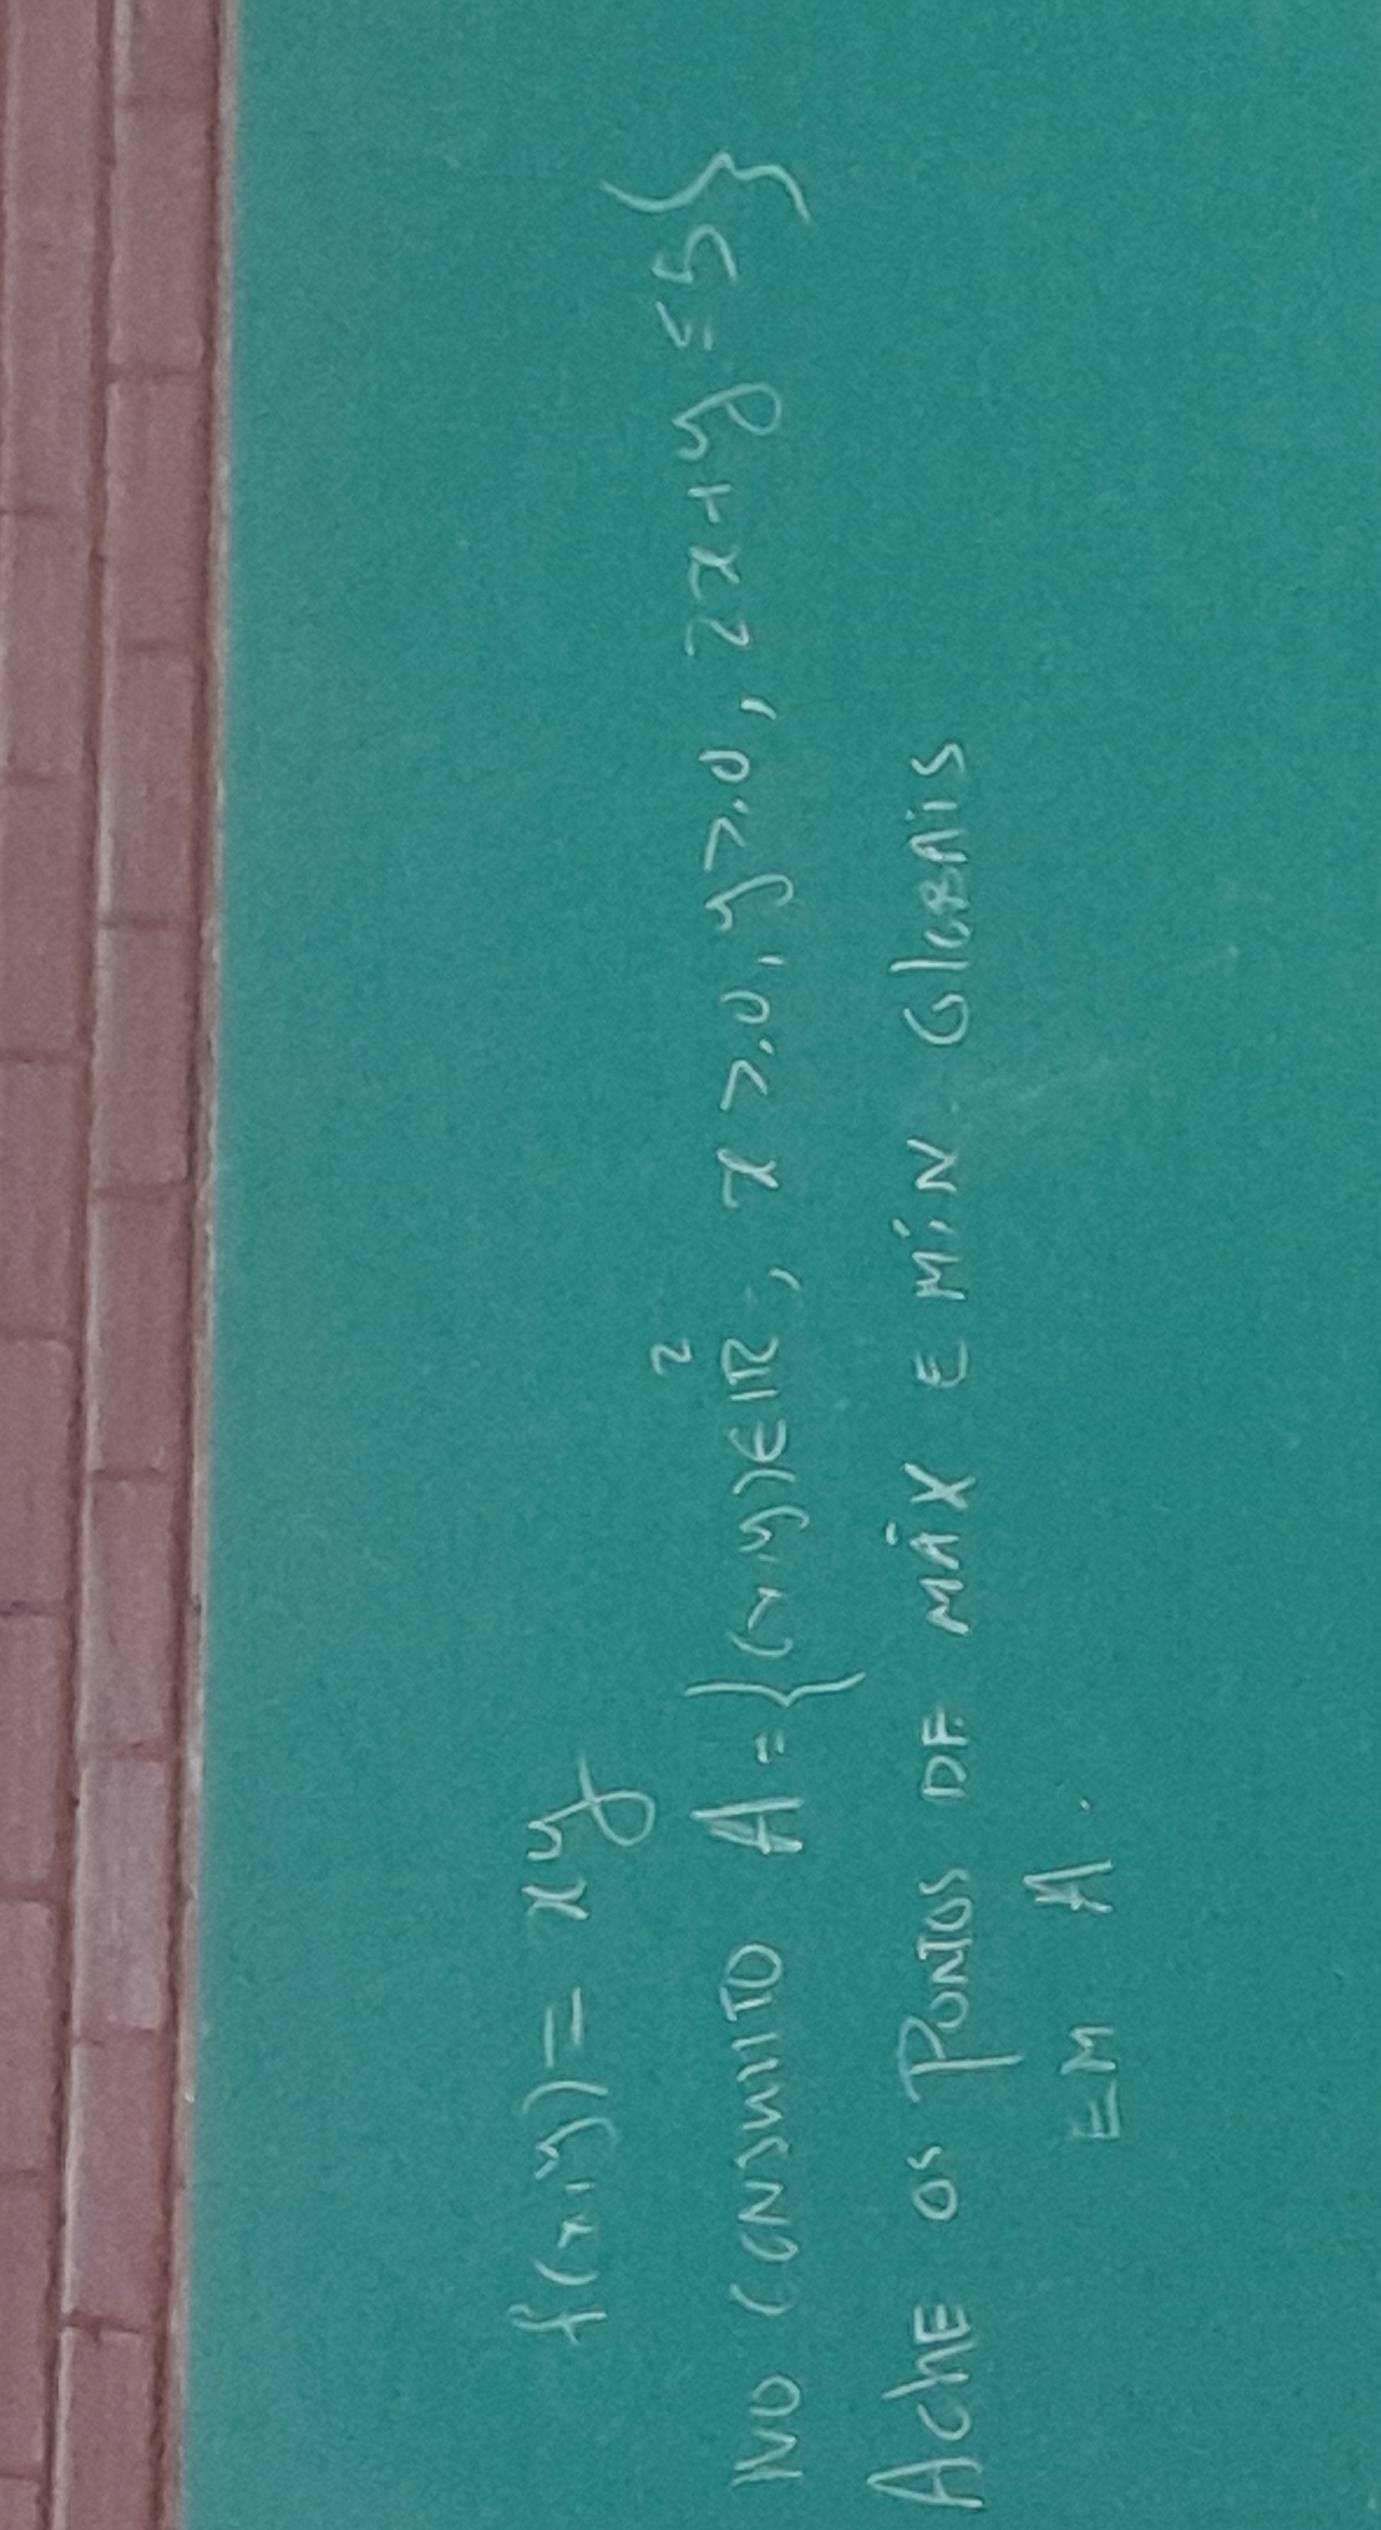 f(x,y) = xy
NO CONJUNTO A = {(x,y) ∈ ℝ², x ≥ 0, y ≥ 0, 2x + y ≤ 5}
ACHE OS PONTOS DE MÁX E MÍN GLOBAIS
EM A.